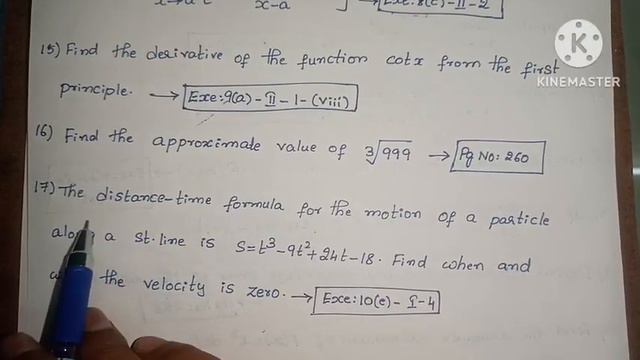 x-a
Exe: 8(c)-II-2
K
KINEMASTER
15) Find the derivative of the function cotx from the first
principle. → Exe: 9(a)-II-1-(viii)
16) Find the approximate value of ∛999 → Pg No: 260
17) The distance-time formula for the motion of a particle
a st. line is S=t³-9t²+24t-18. Find when and
the velocity is zero. → Exe: 10(e)-I-4